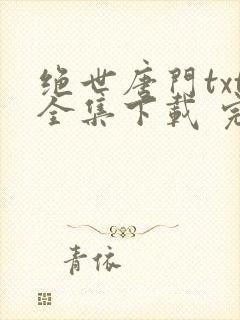 绝世唐門txt
全集下載 完
青依